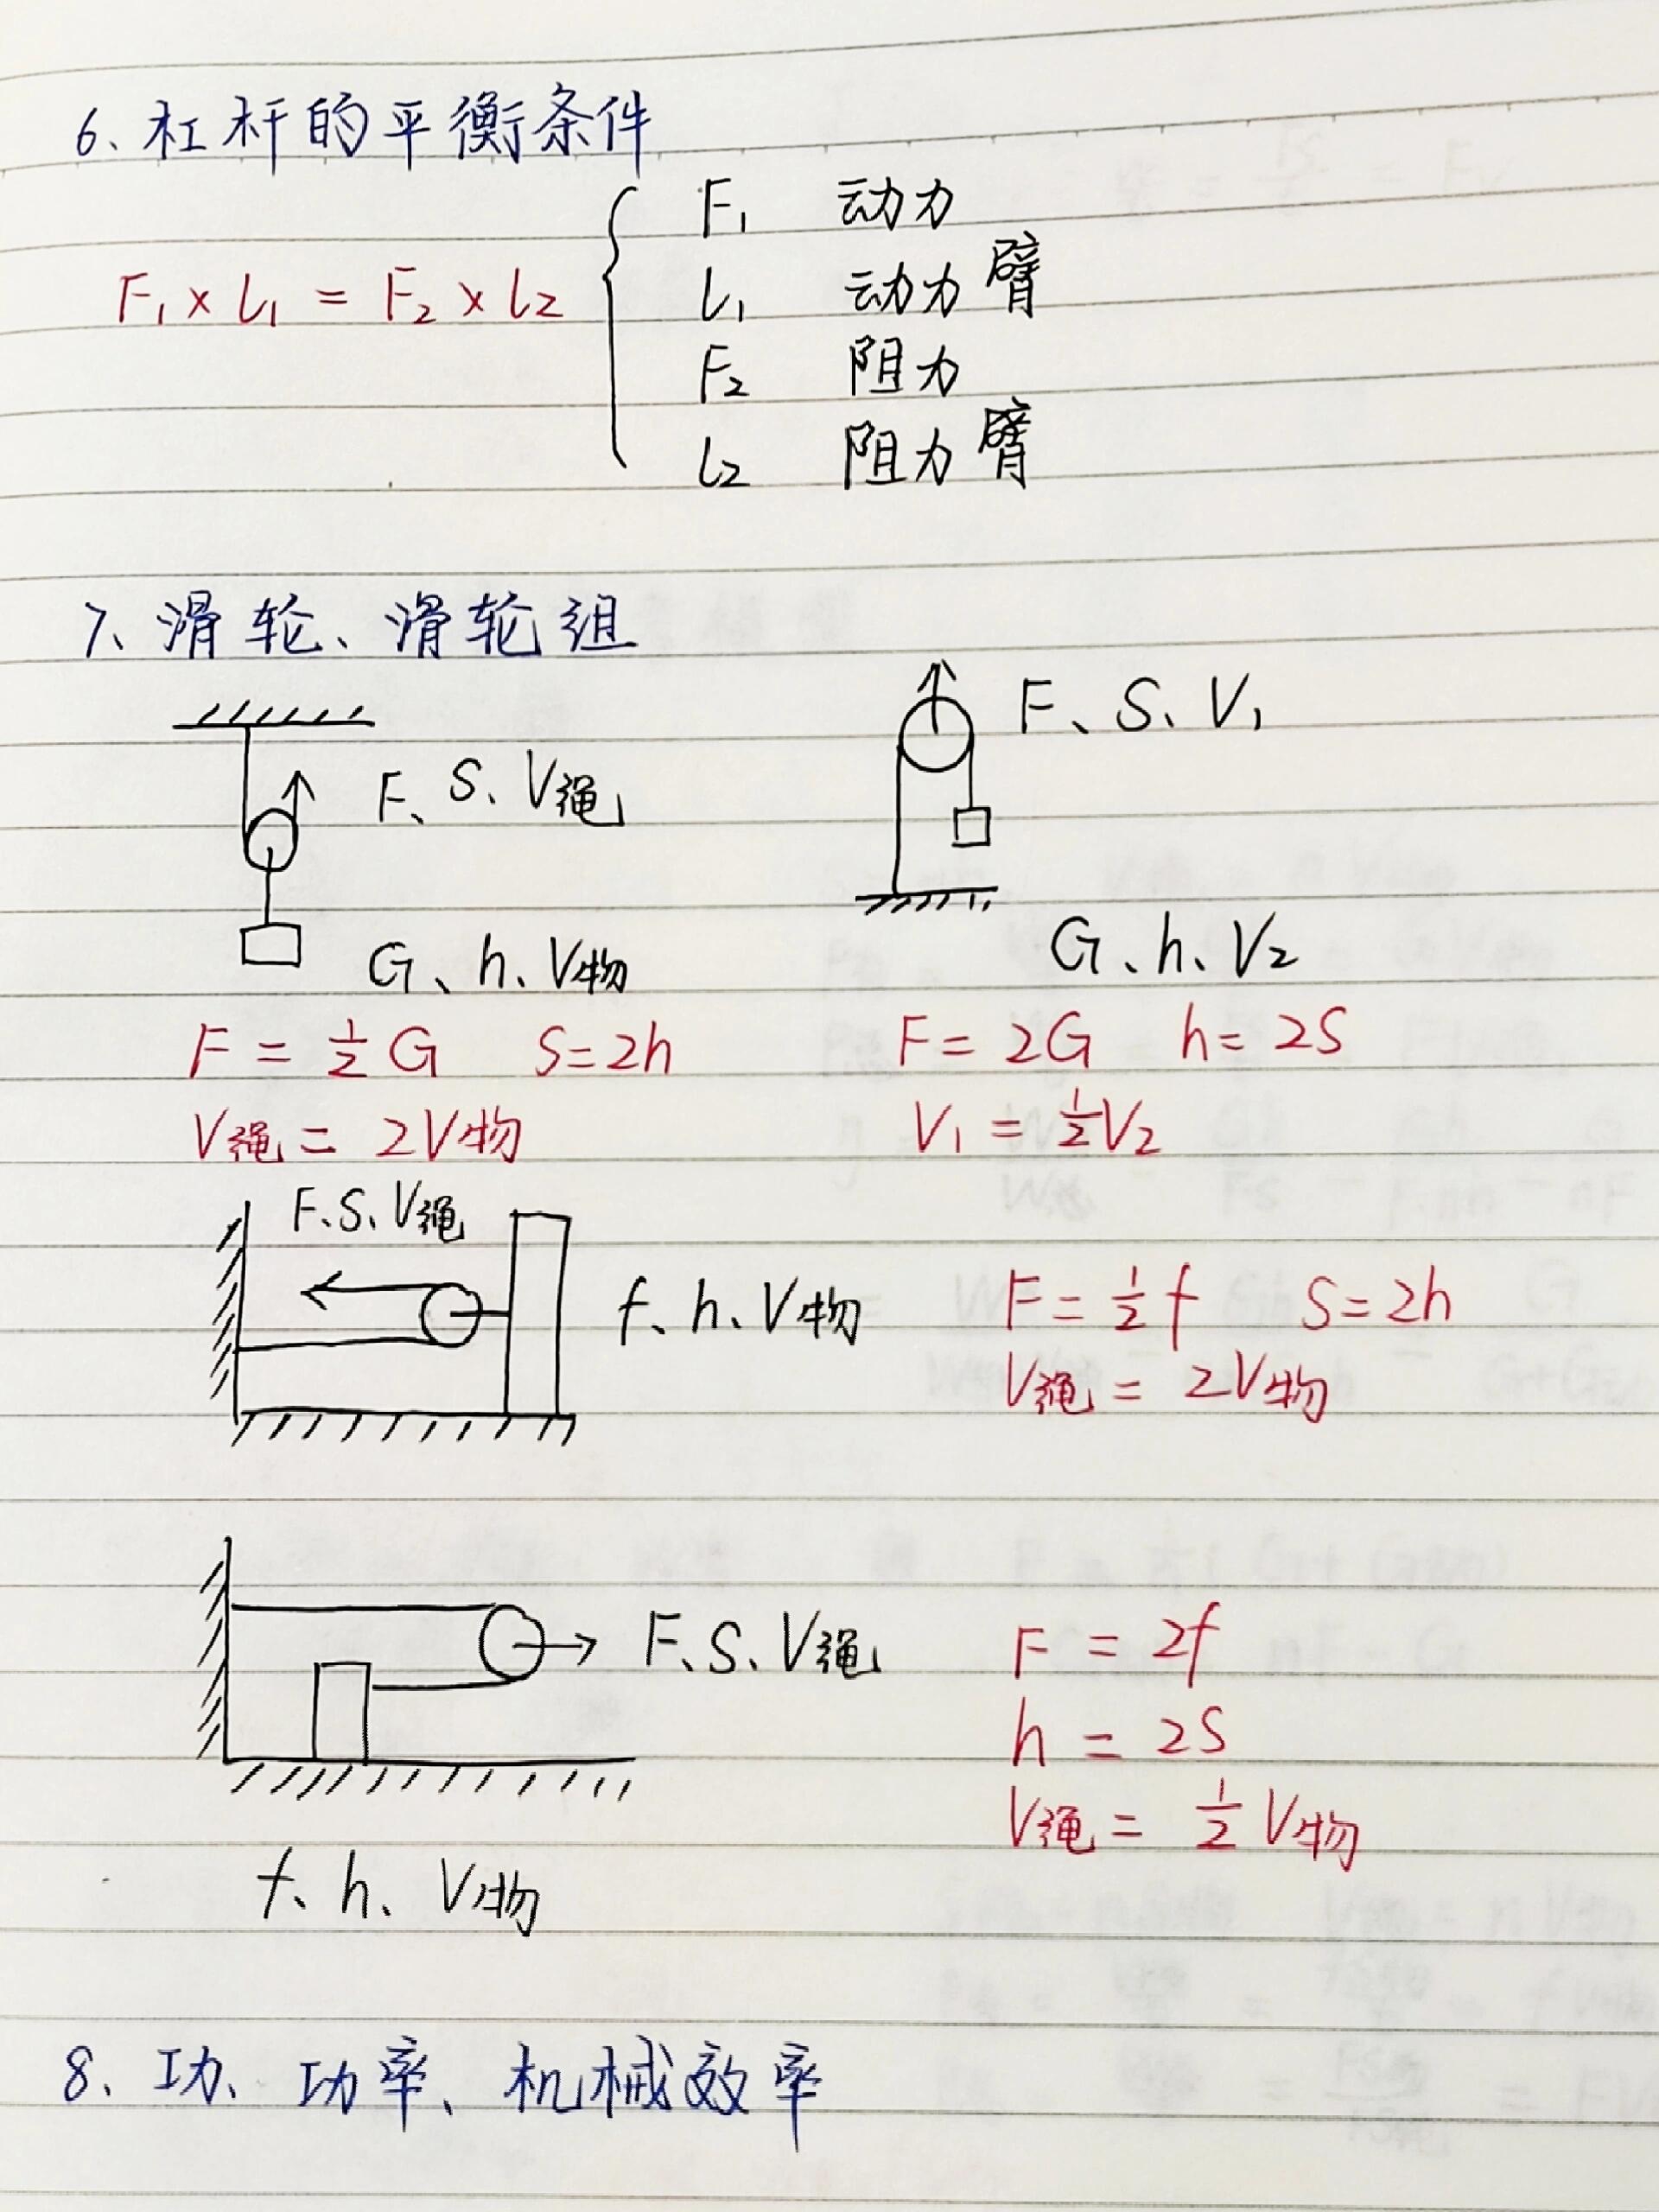 6、杠杆的平衡条件
F₁ 动力
L₁ 动力臂
F₁ × L₁ = F₂ × L₂
F₂ 阻力
L₂ 阻力臂
7、滑轮、滑轮组
F、S、V绳
G、h、V物
F = 1/2 G S=2h
V绳 = 2V物
F、S、V₁
G、h、V₂
F = 2G h = 2S
V₁ = 1/2 V₂
F、S、V绳
f、h、V物
F = 1/2 f S = 2h
V绳 = 2V物
F、S、V绳
f、h、V物
F = 2f
h = 2S
V绳 = 1/2 V物
8、功、功率、机械效率